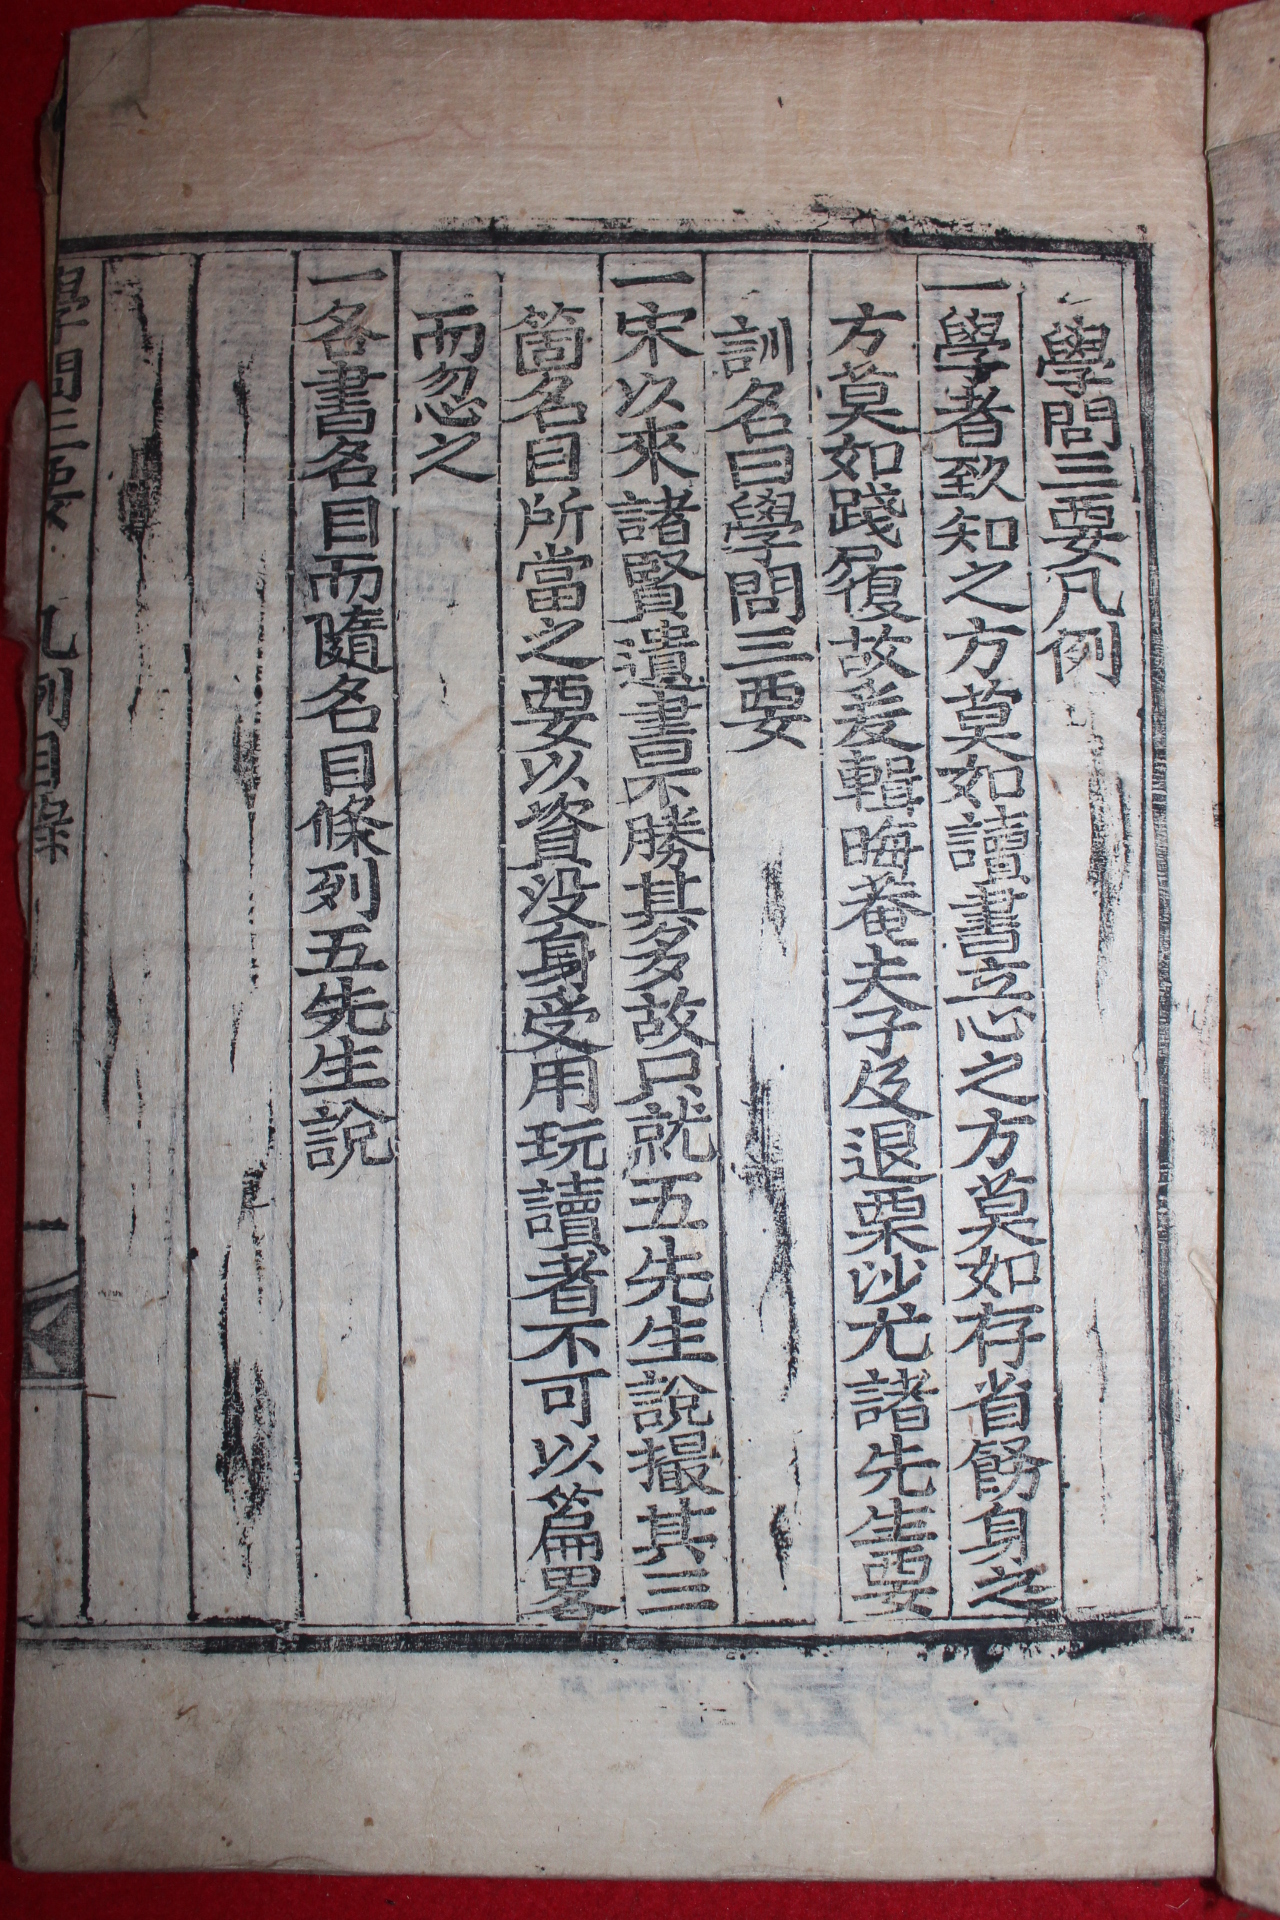 學問三要凡例
一學者致知之方莫如讀書立心之方莫如存省飭身之
方莫如踐履故爰輯晦菴夫子及退栗沙尤諸先生要
訓名曰學問三要
一宋以來諸賢遺書果不勝其多故只就五先生說撮其三
箇名目所當之要以資沒身受用玩讀者不可以篇畧
而忽之
一各書名目而隨名目條列五先生說
學問三要 凡例目錄 一